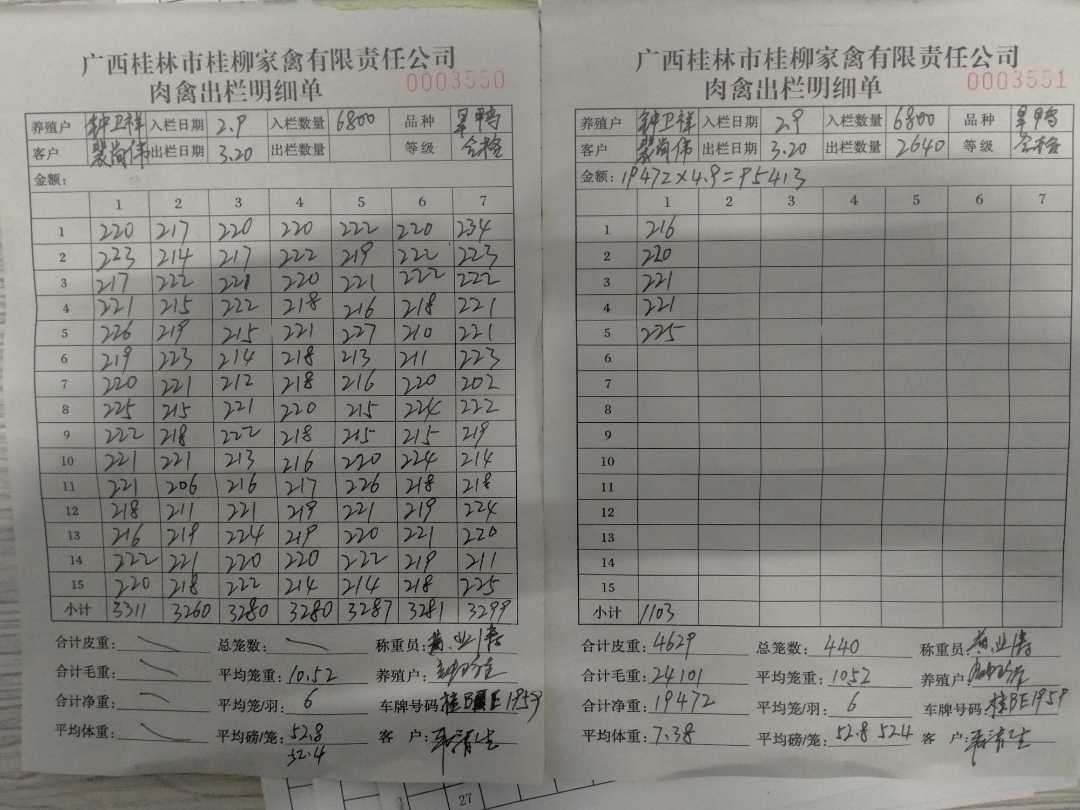 广西桂林市桂柳家禽有限责任公司
肉禽出栏明细单
0003550
养殖户 钟卫祥 入栏日期 2.9 入栏数量 6800 品种 旱鸭
客户 裴尚伟 出栏日期 3.20 出栏数量 等级 合格
金额:
1 2 3 4 5 6 7
1 220 217 220 220 222 220 234
2 223 214 217 222 219 222 223
3 217 222 221 220 221 222 222
4 221 215 222 218 216 218 221
5 226 219 215 221 227 210 221
6 219 223 214 218 213 211 223
7 220 221 212 218 216 220 202
8 225 215 221 220 215 224 222
9 222 218 222 218 215 215 219
10 221 221 213 216 220 224 214
11 221 206 216 217 226 218 218
12 218 211 221 219 221 219 224
13 216 219 224 219 220 221 220
14 222 221 220 220 222 219 211
15 220 218 222 214 214 218 225
小计 3311 3260 3280 3280 3287 3281 3299
合计皮重: 总笼数: 称重员:
合计毛重: 平均笼重: 10.52 养殖户:
合计净重: 平均笼/羽: 6 车牌号码: 桂BE1959
平均体重: 平均磅/笼: 52.8 客 户:
52.4
广西桂林市桂柳家禽有限责任公司
肉禽出栏明细单
0003551
养殖户 钟卫祥 入栏日期 2.9 入栏数量 6800 品种 旱鸭
客户 裴尚伟 出栏日期 3.20 出栏数量 2640 等级 合格
金额: 19472×4.9=95413
1 2 3 4 5 6 7
1 216
2 220
3 221
4 221
5 225
6
7
8
9
10
11
12
13
14
15
小计 1103
合计皮重: 4629 总笼数: 440 称重员:
合计毛重: 24101 平均笼重: 1052 养殖户
合计净重: 19472 平均笼/羽: 6 车牌号码: 桂BE1959
平均体重: 7.38 平均磅/笼: 52.8 524 客 户:
27